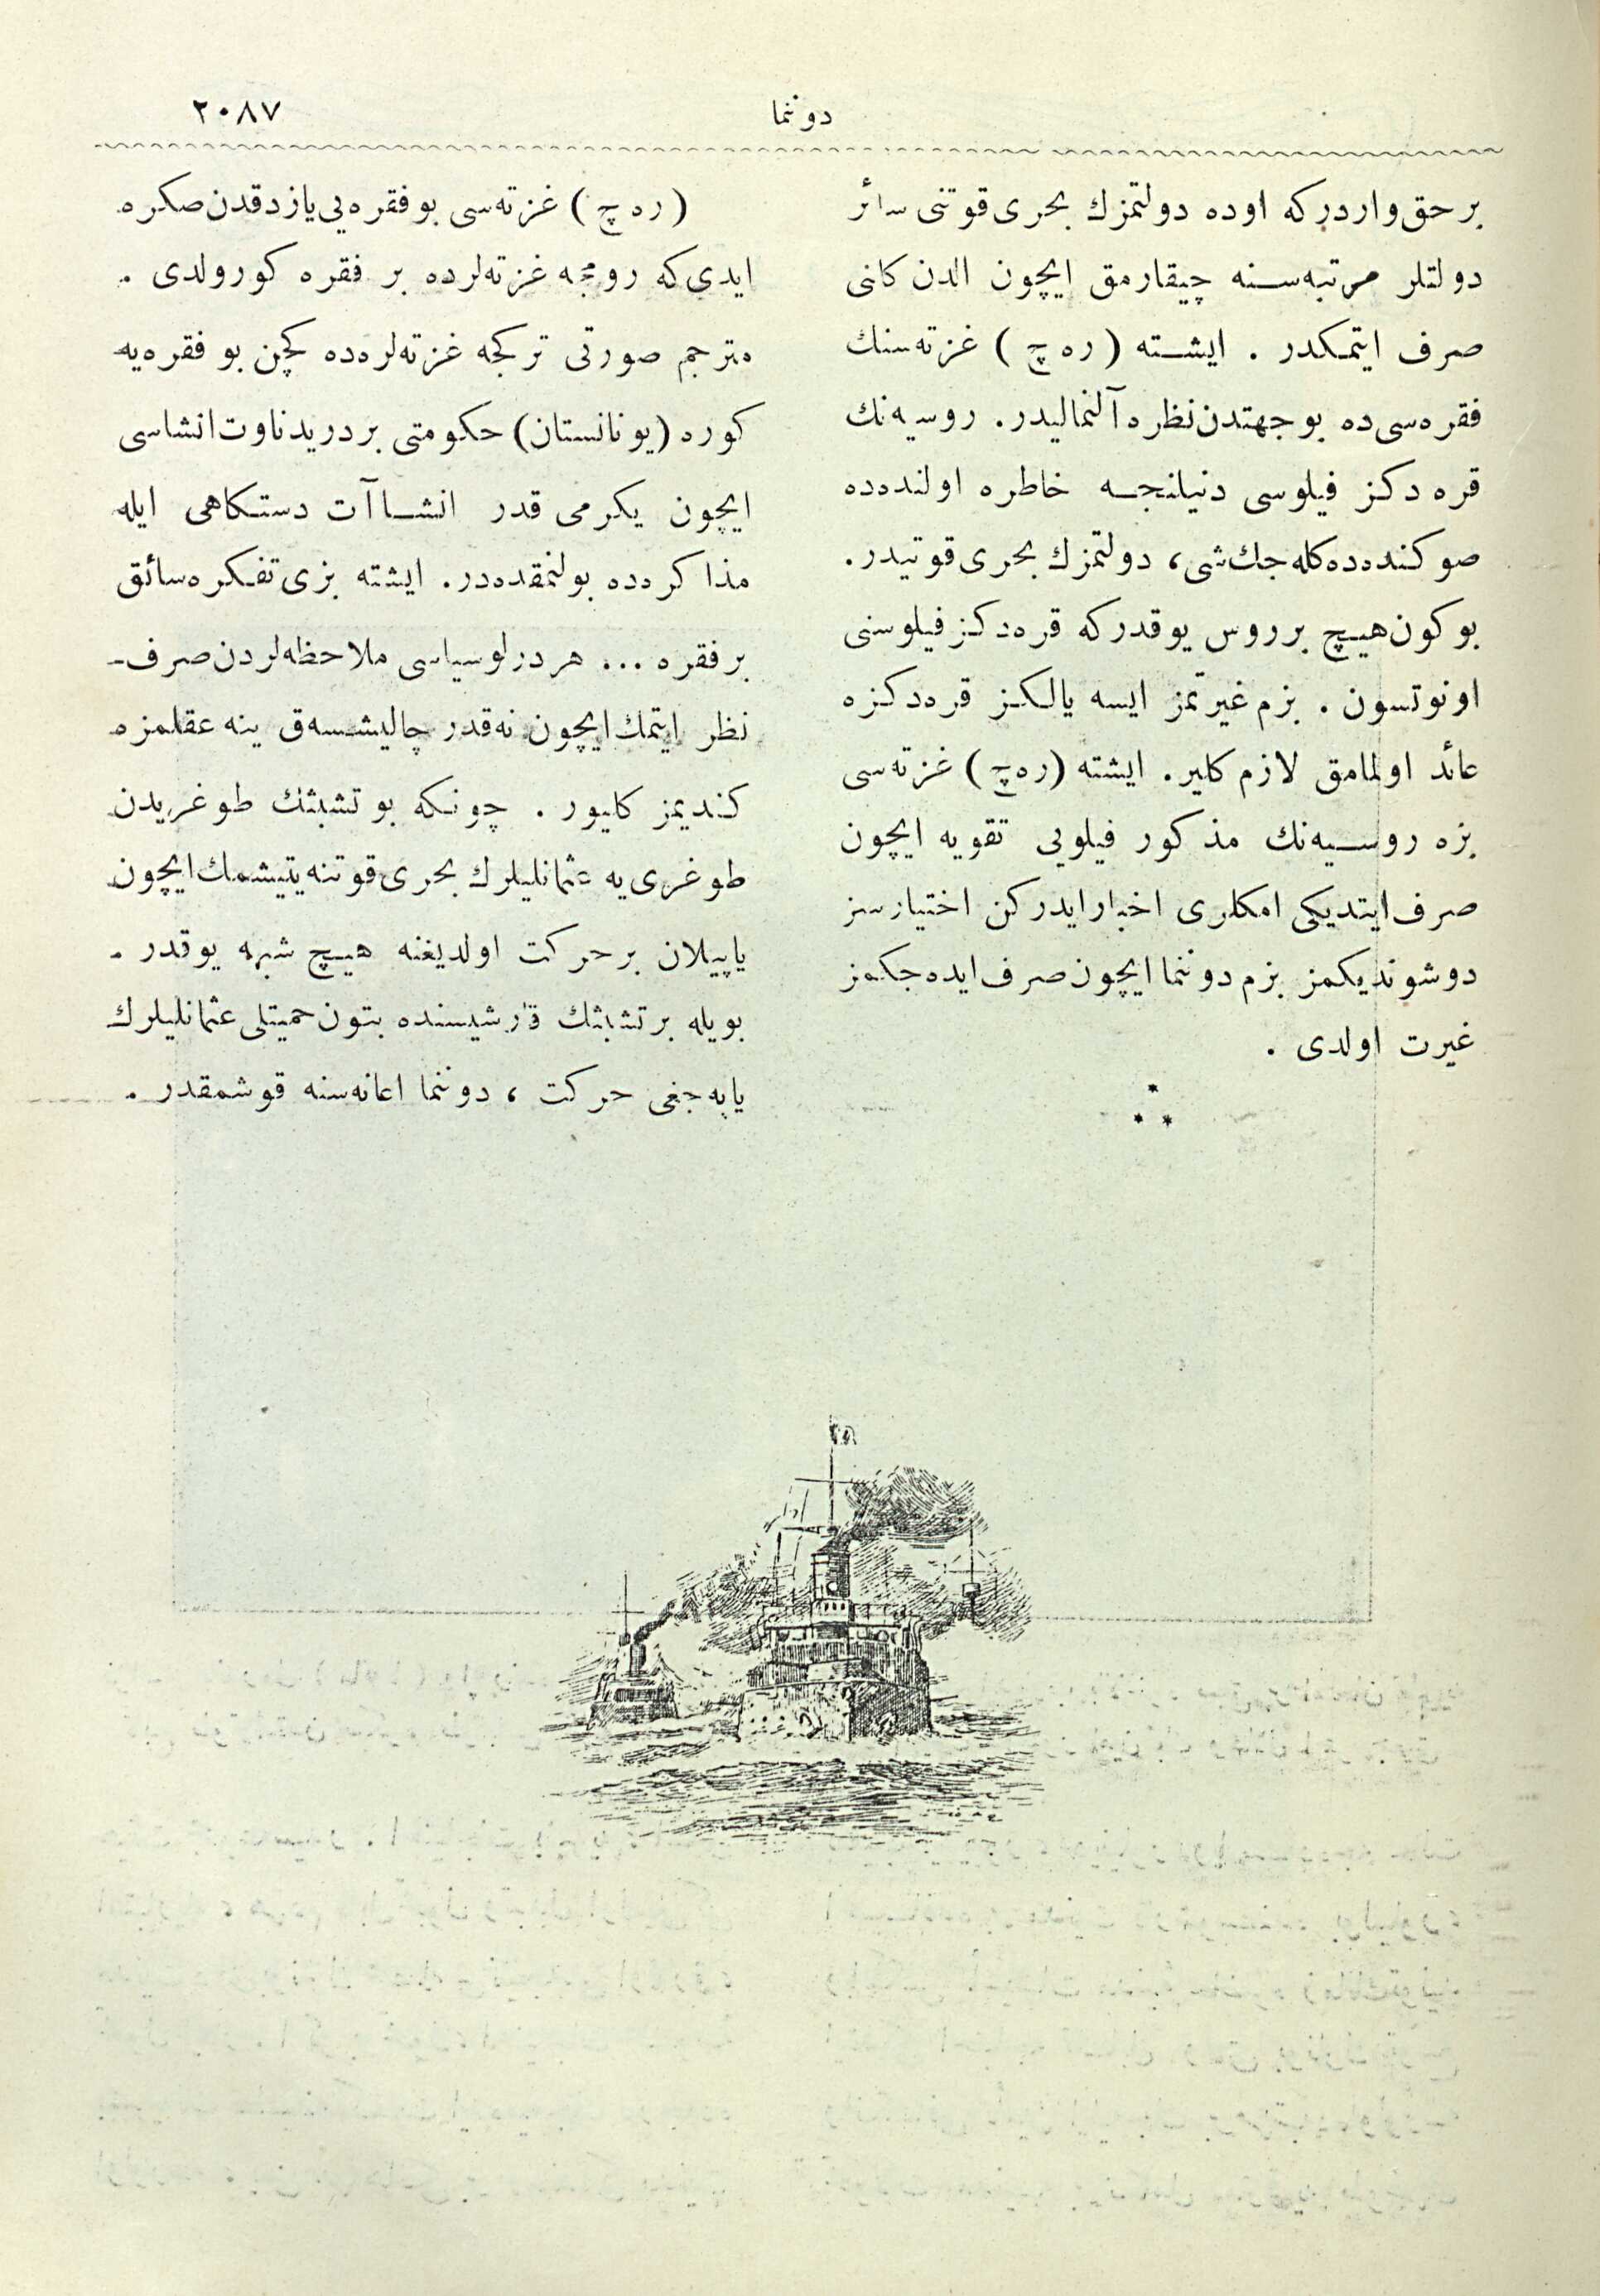 دوننما
٢٠٨٧
بر حق واردركه اوده دولتمزك بحری قوتنی سائر
دولتلر مرتبه‌سنه چیقارمق ایچون الدن كلنی
صرف ایتمكدر . ایشته ( ره چ ) غزته‌سنك
فقره‌سی ده بو جهتدن نظره آلنمالیدر . روسیه‌نك
قره دكز فیلوسی دنیلنجه خاطره اولنده‌ده
صوكنده‌ده كله‌جك شی ، دولتمزك بحری قوتیدر .
بو كون هیچ بر روس یوقدركه قره‌دكز فیلوسنی
اونوتسون . بزم غیرتمز ایسه یالكز قره‌دكزه
عائد اولمامق لازم كلیر . ایشته ( ره چ ) غزته‌سی
بزه روسیه‌نك مذكور فیلویی تقویه ایچون
صرف ایتدیكی امكلری اخبار ایدركن اختیارسز
دوشوندیكمز بزم دوننما ایچون صرف ایده‌جكمز
غیرت اولدی .
* * *
( ره چ ) غزته‌سی بو فقره‌یی یازدقدن صكره
ایدی كه رومجه غزته‌لرده بر فقره كورولدی .
مترجم صورتی تركجه غزته‌لره‌ده كچن بو فقره‌یه
كوره ( یونانستان ) حكومتی بر دریدناوت انشاسی
ایچون یكرمی قدر انشاآت دستكاهی ایله
مذاكره‌ده بولنمقده‌در . ایشته بزی تفكره سائق
بر فقره ... هر درلو سیاسی ملاحظه‌لردن صرف-
نظر ایتمك ایچون نه‌قدر چالیشسه‌ق ینه عقلمزه
كندیمز كلیور . چونكه بو تشبثك طوغریدن
طوغری‌یه عثمانلیلرك بحری قوتنه یتیشمك ایچون
یاپیلان بر حركت اولدیغنه هیچ شبهه یوقدر .
بویله بر تشبثك قارشیسنده بتون حمیتلی عثمانلیلرك
یاپه‌جغی حركت ، دوننما اعانه‌سنه قوشمقدر .